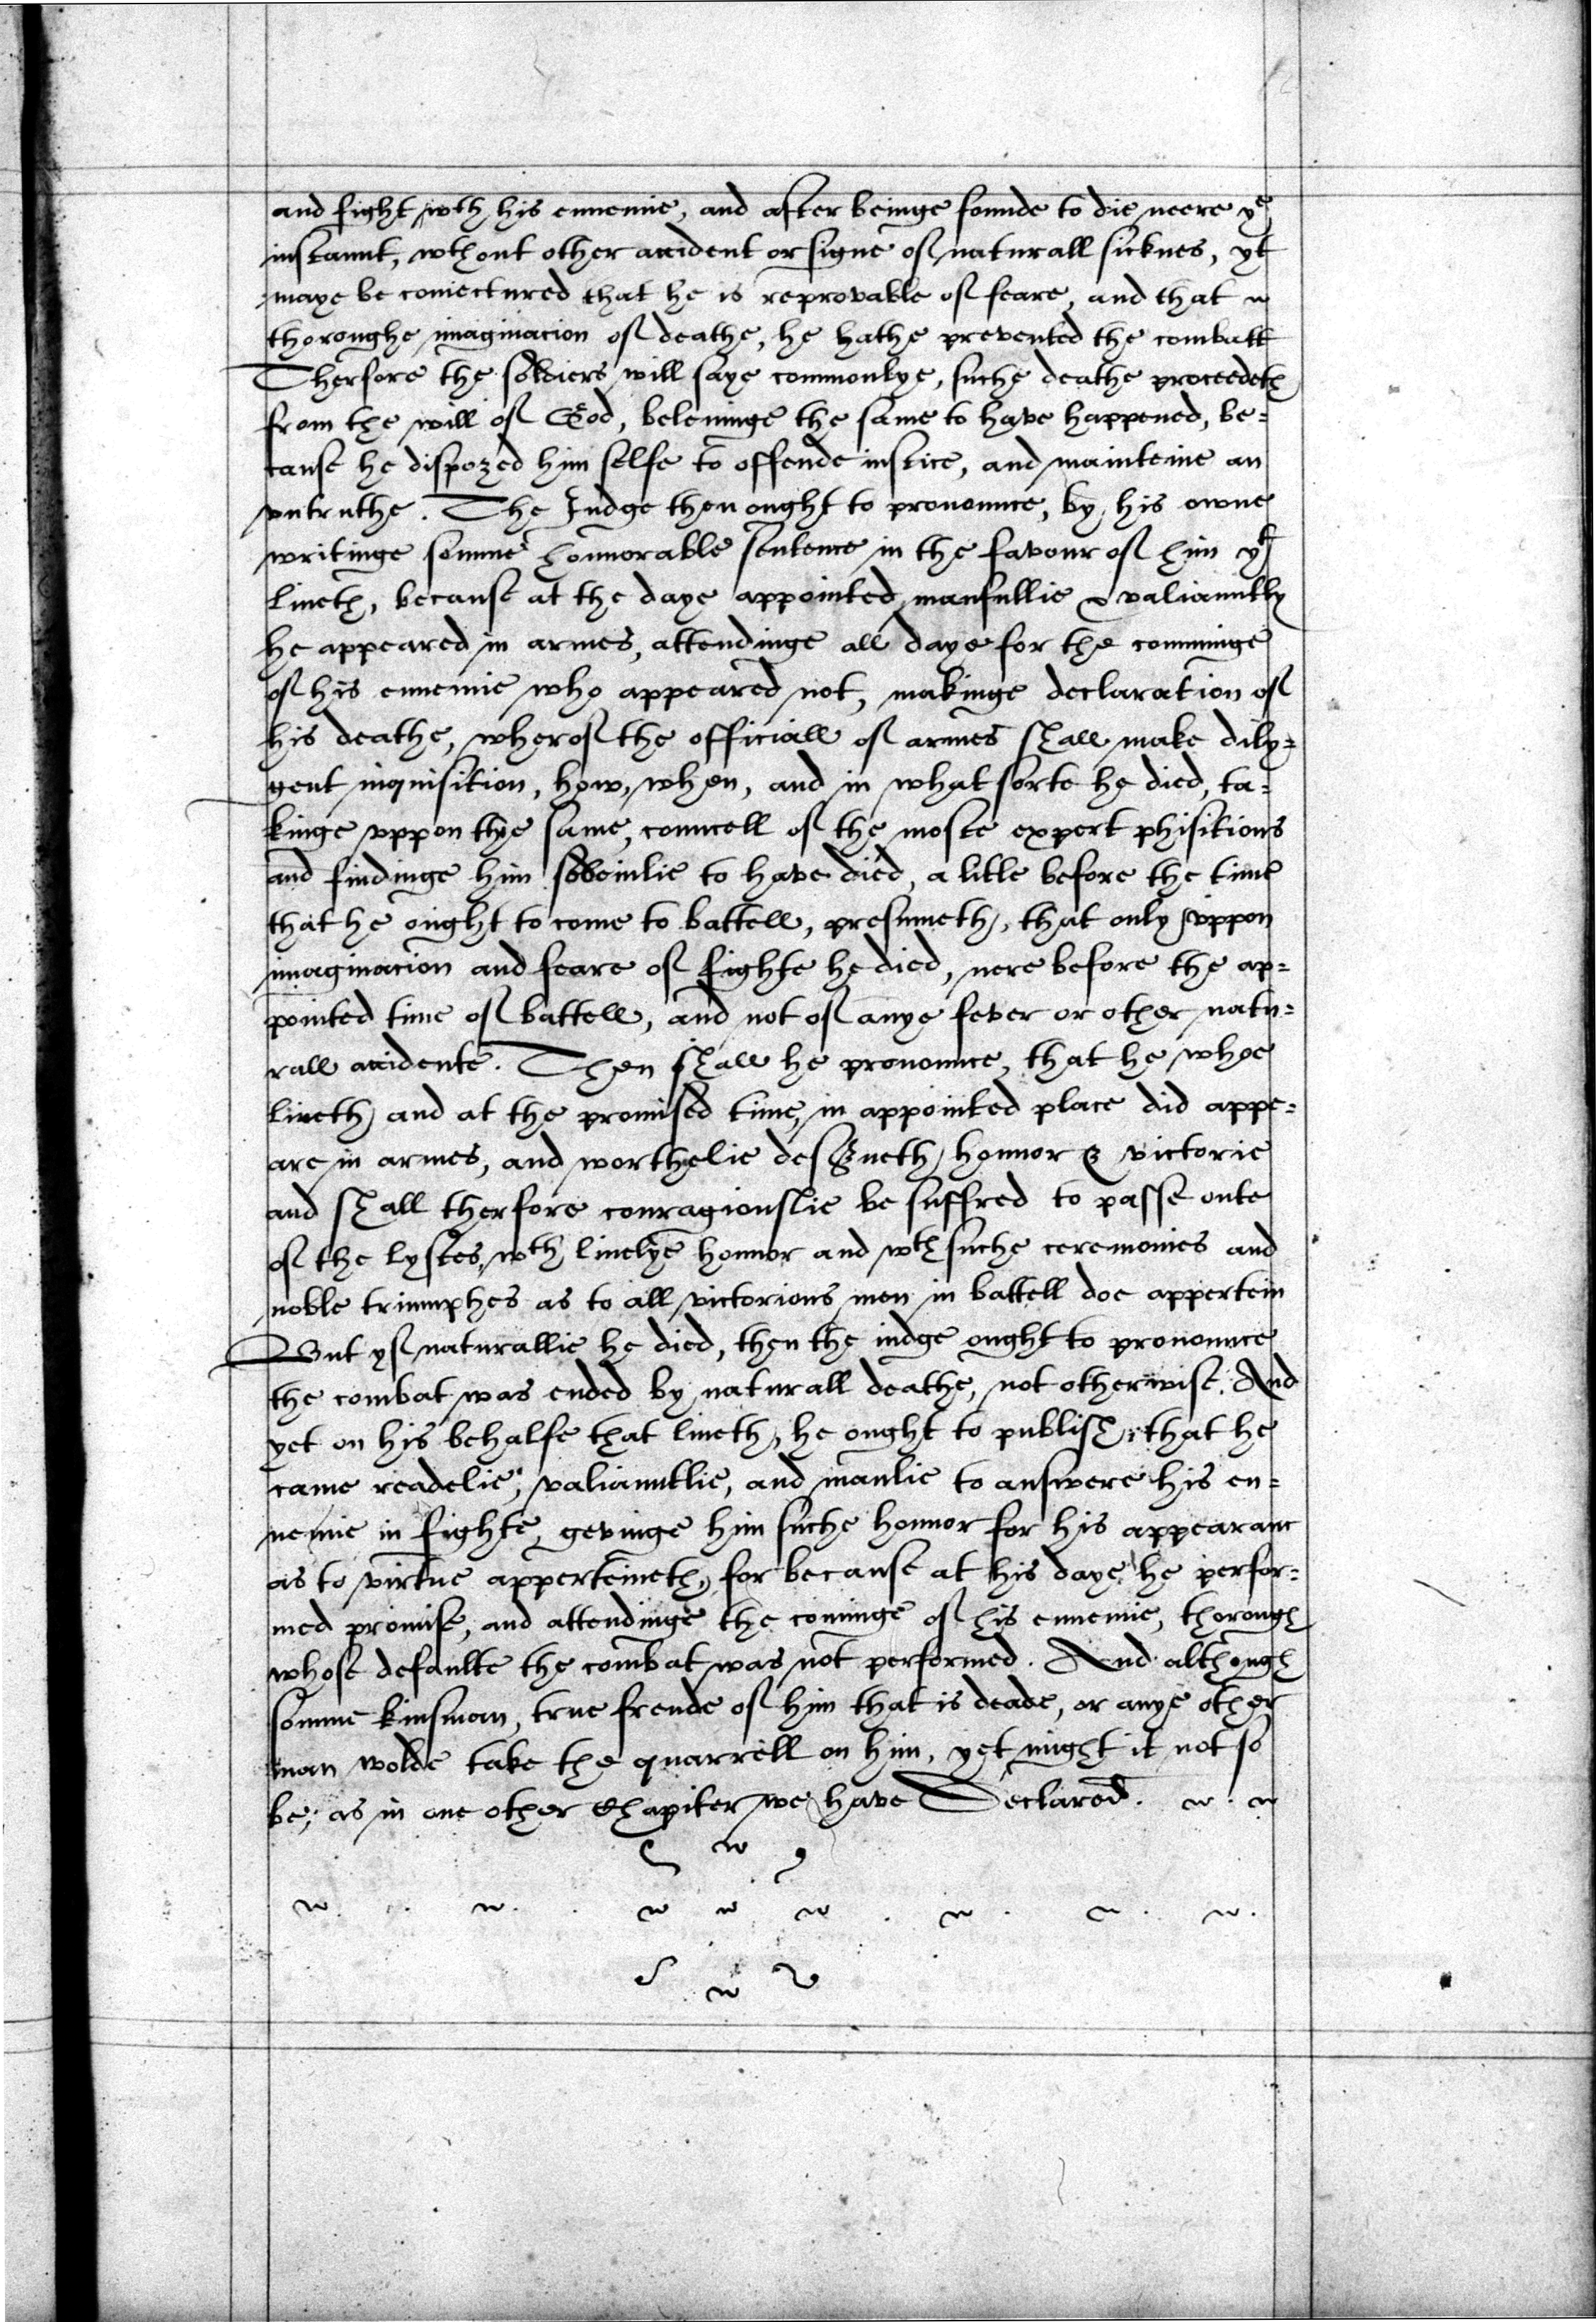 and fight wth his ennemie, and after beinge founde to die neere ye
instaunt, wthout other accident or signe of naturall sicknes, yt
maye be coniectured that he is reprovable of feare, and that
thoroughe imaginacion of deathe, he hathe prevented the combatt
Therfore the soldiers will saye commonlye, suche deathe proceedeth
from the will of God, beleuinge the same to have happened, be=
cause he dispozed him selfe to offende iustice, and mainteine an
vntruthe. The Iudge then ought to pronounce, by his owne
writinge somme honnorable sentence in the favour of him yt
liueth, because at the daye appointed manfullie & valiauntly
he appeared in armes, attendinge all daye for the comminge
of his ennemie who appeared not, makinge declaration of
his deathe, wherof the officiall of armes shall make dily=
gent inquisition, how, when, and in what sorte he died, ta=
kinge vppon the same, councell of the moste expert phisitions
and findinge him soddeinlie to have died, a litle before the time
that he ought to come to battell, presumeth, that only vppon
imaginacion and feare of fighte he died, nere before the ap=
pointed time of battell, and not of anye fever or other natu=
rall accidente. Then shall he pronounce, that he whoe
liveth and at the promised time, in appointed place did appe=
are in armes, and worthelie deserueth honnor & victorie
and shall therfore couragiouslie be suffred to passe oute
of the lystes, wth liuelye honnor and wth suche ceremonies and
noble triumphes as to all victorious men in battell doe appertein
But yf naturallie he died, then the iudge ought to pronounce
the combat was ended by naturall deathe, not otherwise. And
yet on his behalfe that liueth, he ought to publish, that he
came readelie, valiauntlie, and manlie to answere his en=
nemie in fighte, gevinge him suche honnor for his appearanc
as to virtue apperteineth, for because at his daye he perfor=
med promise, and attendinge the cominge of his ennemie, thorough
whose defaulte the combat was not performed. And although
somme kinsman, true frende of him that is deade, or anye other
man wolde take the quarrell on him, yet might it not so
be, as in one other Chapiter we have Declared.